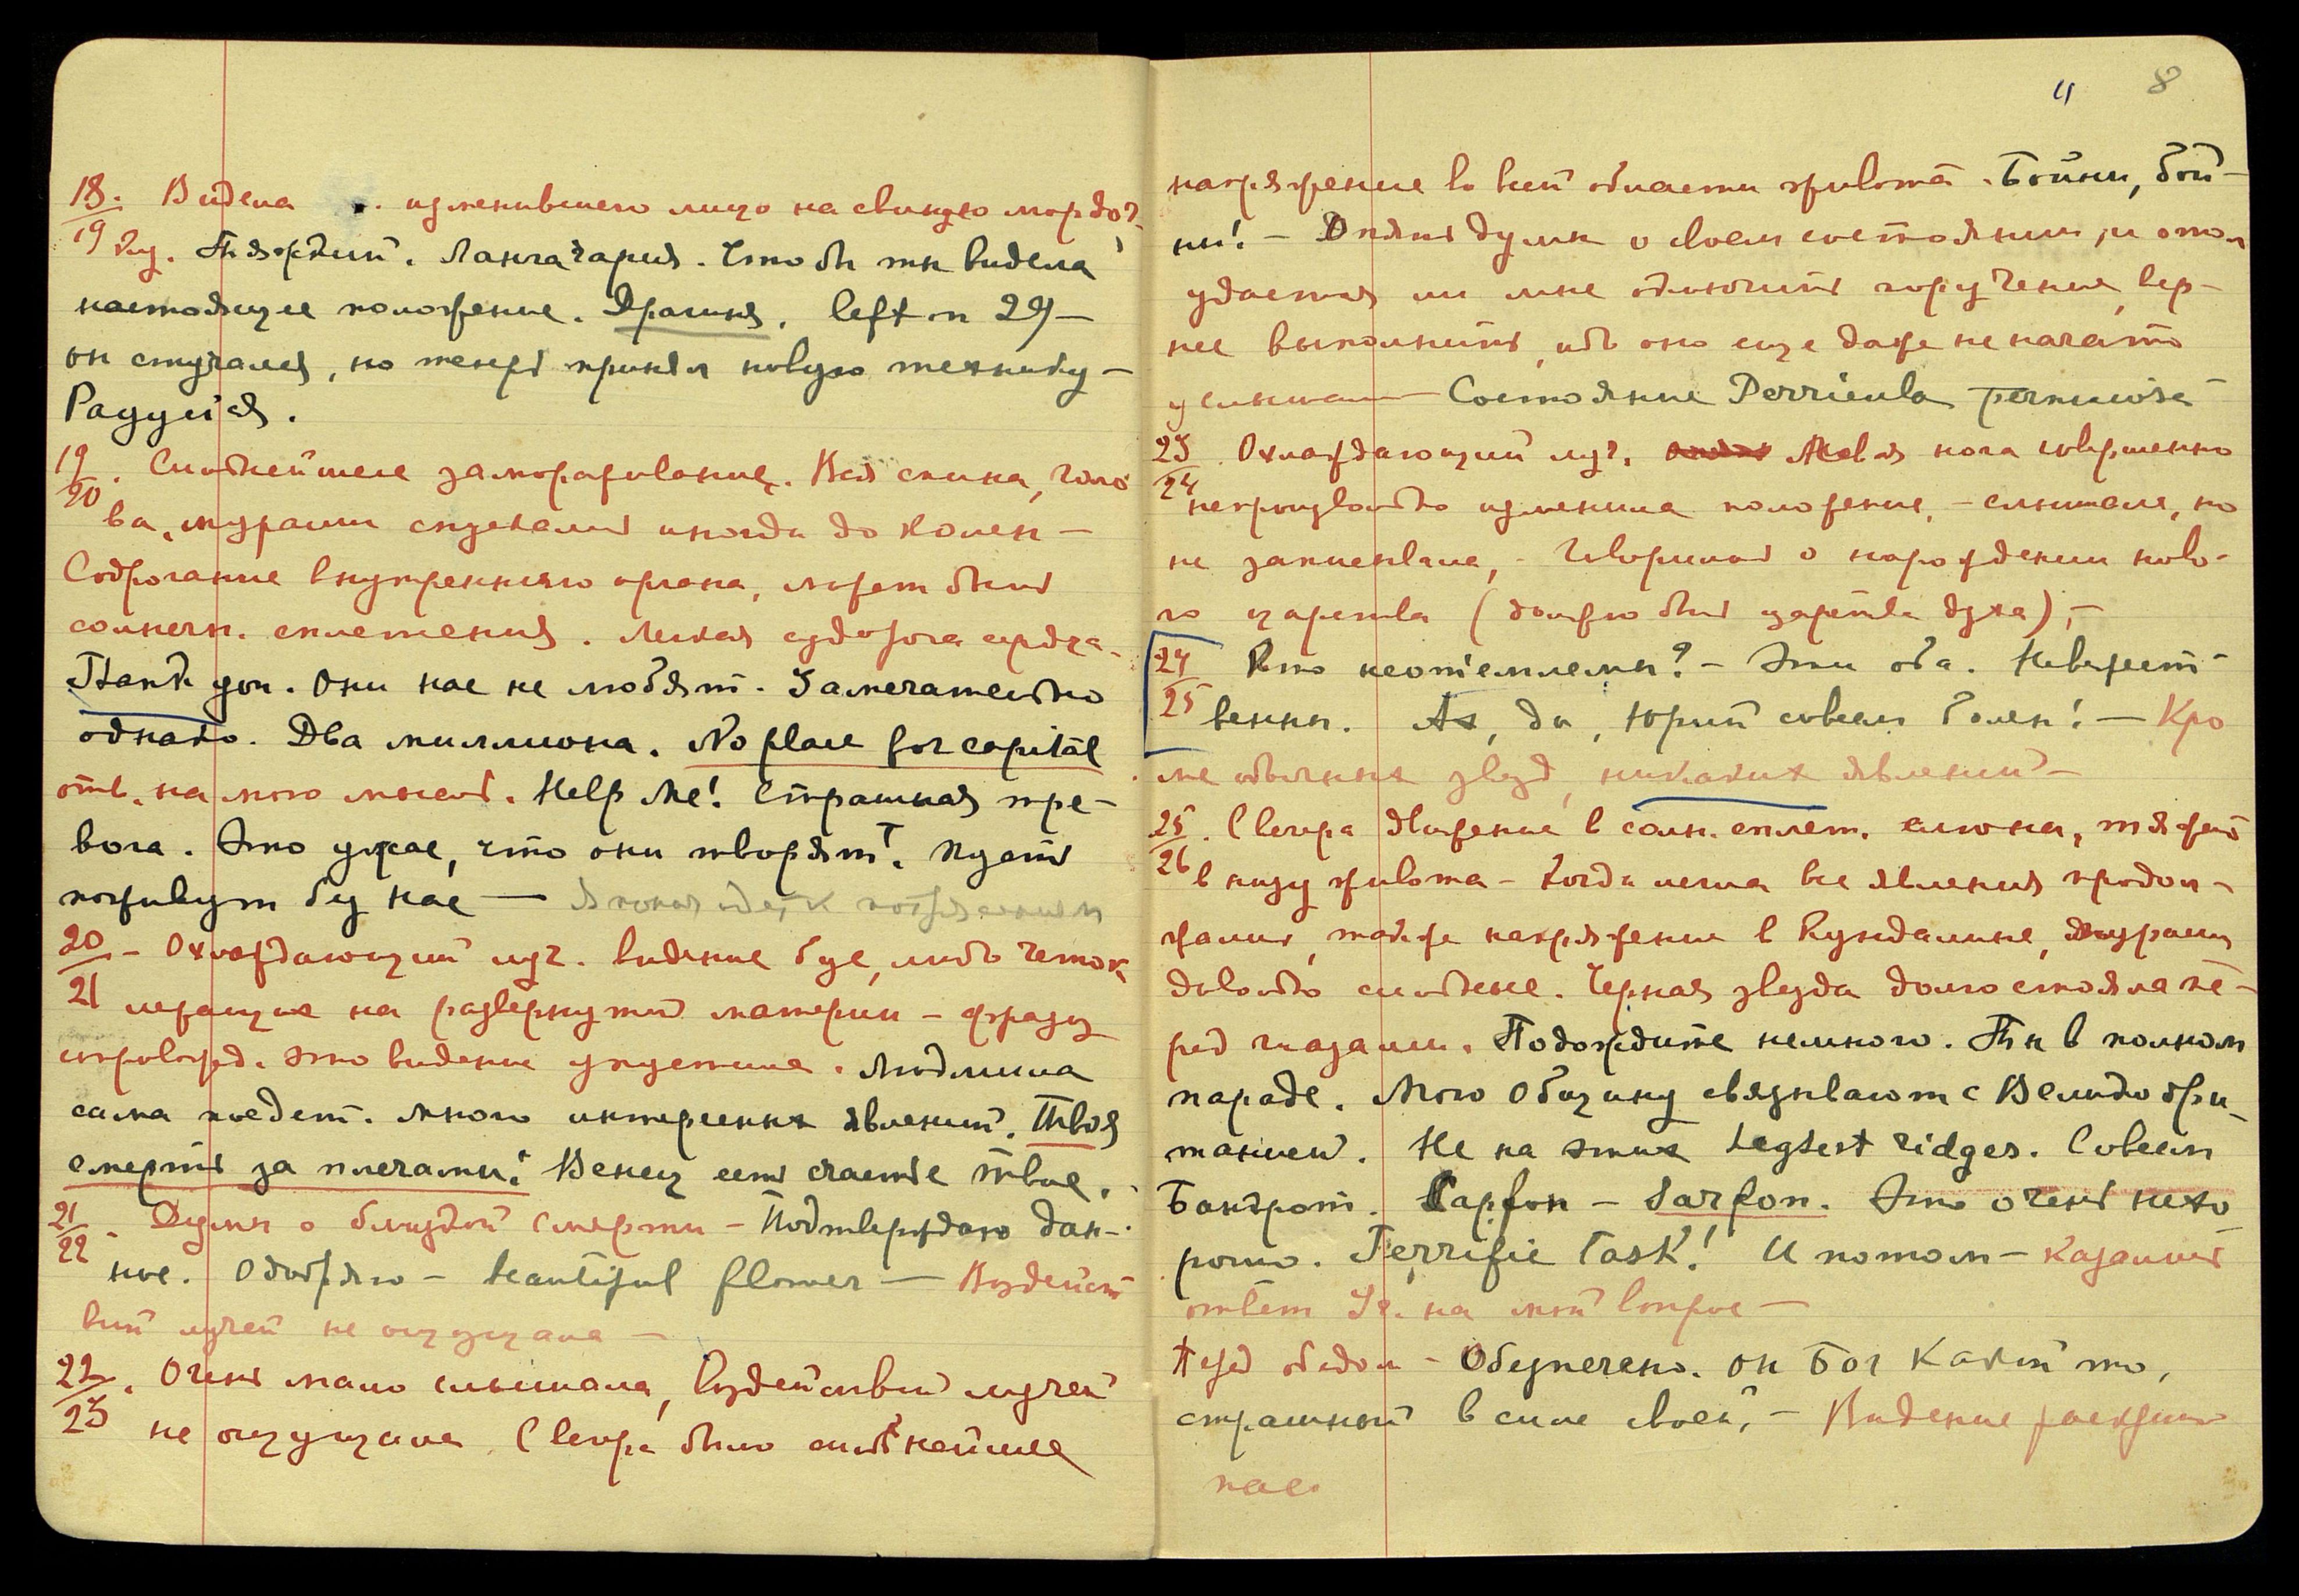 18. Видела . изменившего лицо на свиную мордоч-
19 ку. Тяжкий. Лангачария. Что бы ты видела
настоящее положение. Драшна. left on 29 —
он стучался, но теперь принял новую технику —
Радуйся.
19. Сильнейшее замораживание. Вся спина, голо
20 ва, мурашки спускались иногда до колен —
Содрогание внутреннего органа, может быть
солнечн. сплетения. Легкая судорога сердца.
Thank you. Они нас не любят. Замечательно
однако. Два миллиона. No place for capital
отв. на мою мысль. Help Me! Страшная тре-
вога. Это ужас, что они творят! Пусть
поживут без нас —
20 — Охлаждающий луч. Видение бус, либо четок
21 лежащих на развернутой материи — фразу
сопровожд. это видение упустила. Людмила
сама поедет. Много интересных явлений. Твоя
смерть за плечами! Венец есть счастье твое.
21. Думы о близкой смерти — Подтверждаю дан-
22 ное. Одобряю — beautiful flower — Воздейст
вий лучей не ощущала —
22. Очень мало слышала, воздействий лучей
23 не ощущала. С вечера было сильнейшее
8
напряжение во всей области живота. Бойни, бой-
ни! — Опять думы о своем состоянии, и о том
удастся ли мне закончить поручение, вер-
нее выполнить, ибо оно еще даже не начато
услышала — Состояние
23. Охлаждающий луч. Левая нога совершенно
24 непроизвольно изменила положение, — слышала, но
не записывала, — Говорилось о нарождении ново-
го царства (должно быть царства духа), —
24 Кто неотъемлемы? — Эти оба. Невежест-
25 венны. Ах, да, Юрий совсем болен! — Кро
ме обычных звезд, никаких явлений —
25. С вечера движение в солн. сплет. слюна, тяжесть
26 в низу живота — Когда легла все явления продол-
жались, также напряжение в Кундалини, мурашки
довольно сильные. Черная звезда долго стояла пе-
ред глазами. Подождите немного. Ты в полном
параде. Мою Общину связывают с Великобри-
танией. Не на этих ridges. Совсем
Банкрот. Sarfon — Sarfon. Это очень нехо
рошо. Terrific Task! И потом — казались
ответ Уч. на мой вопрос —
Перед обедом — Обеспечено. Он Бог какой то,
страшный в силе своей. — Видение